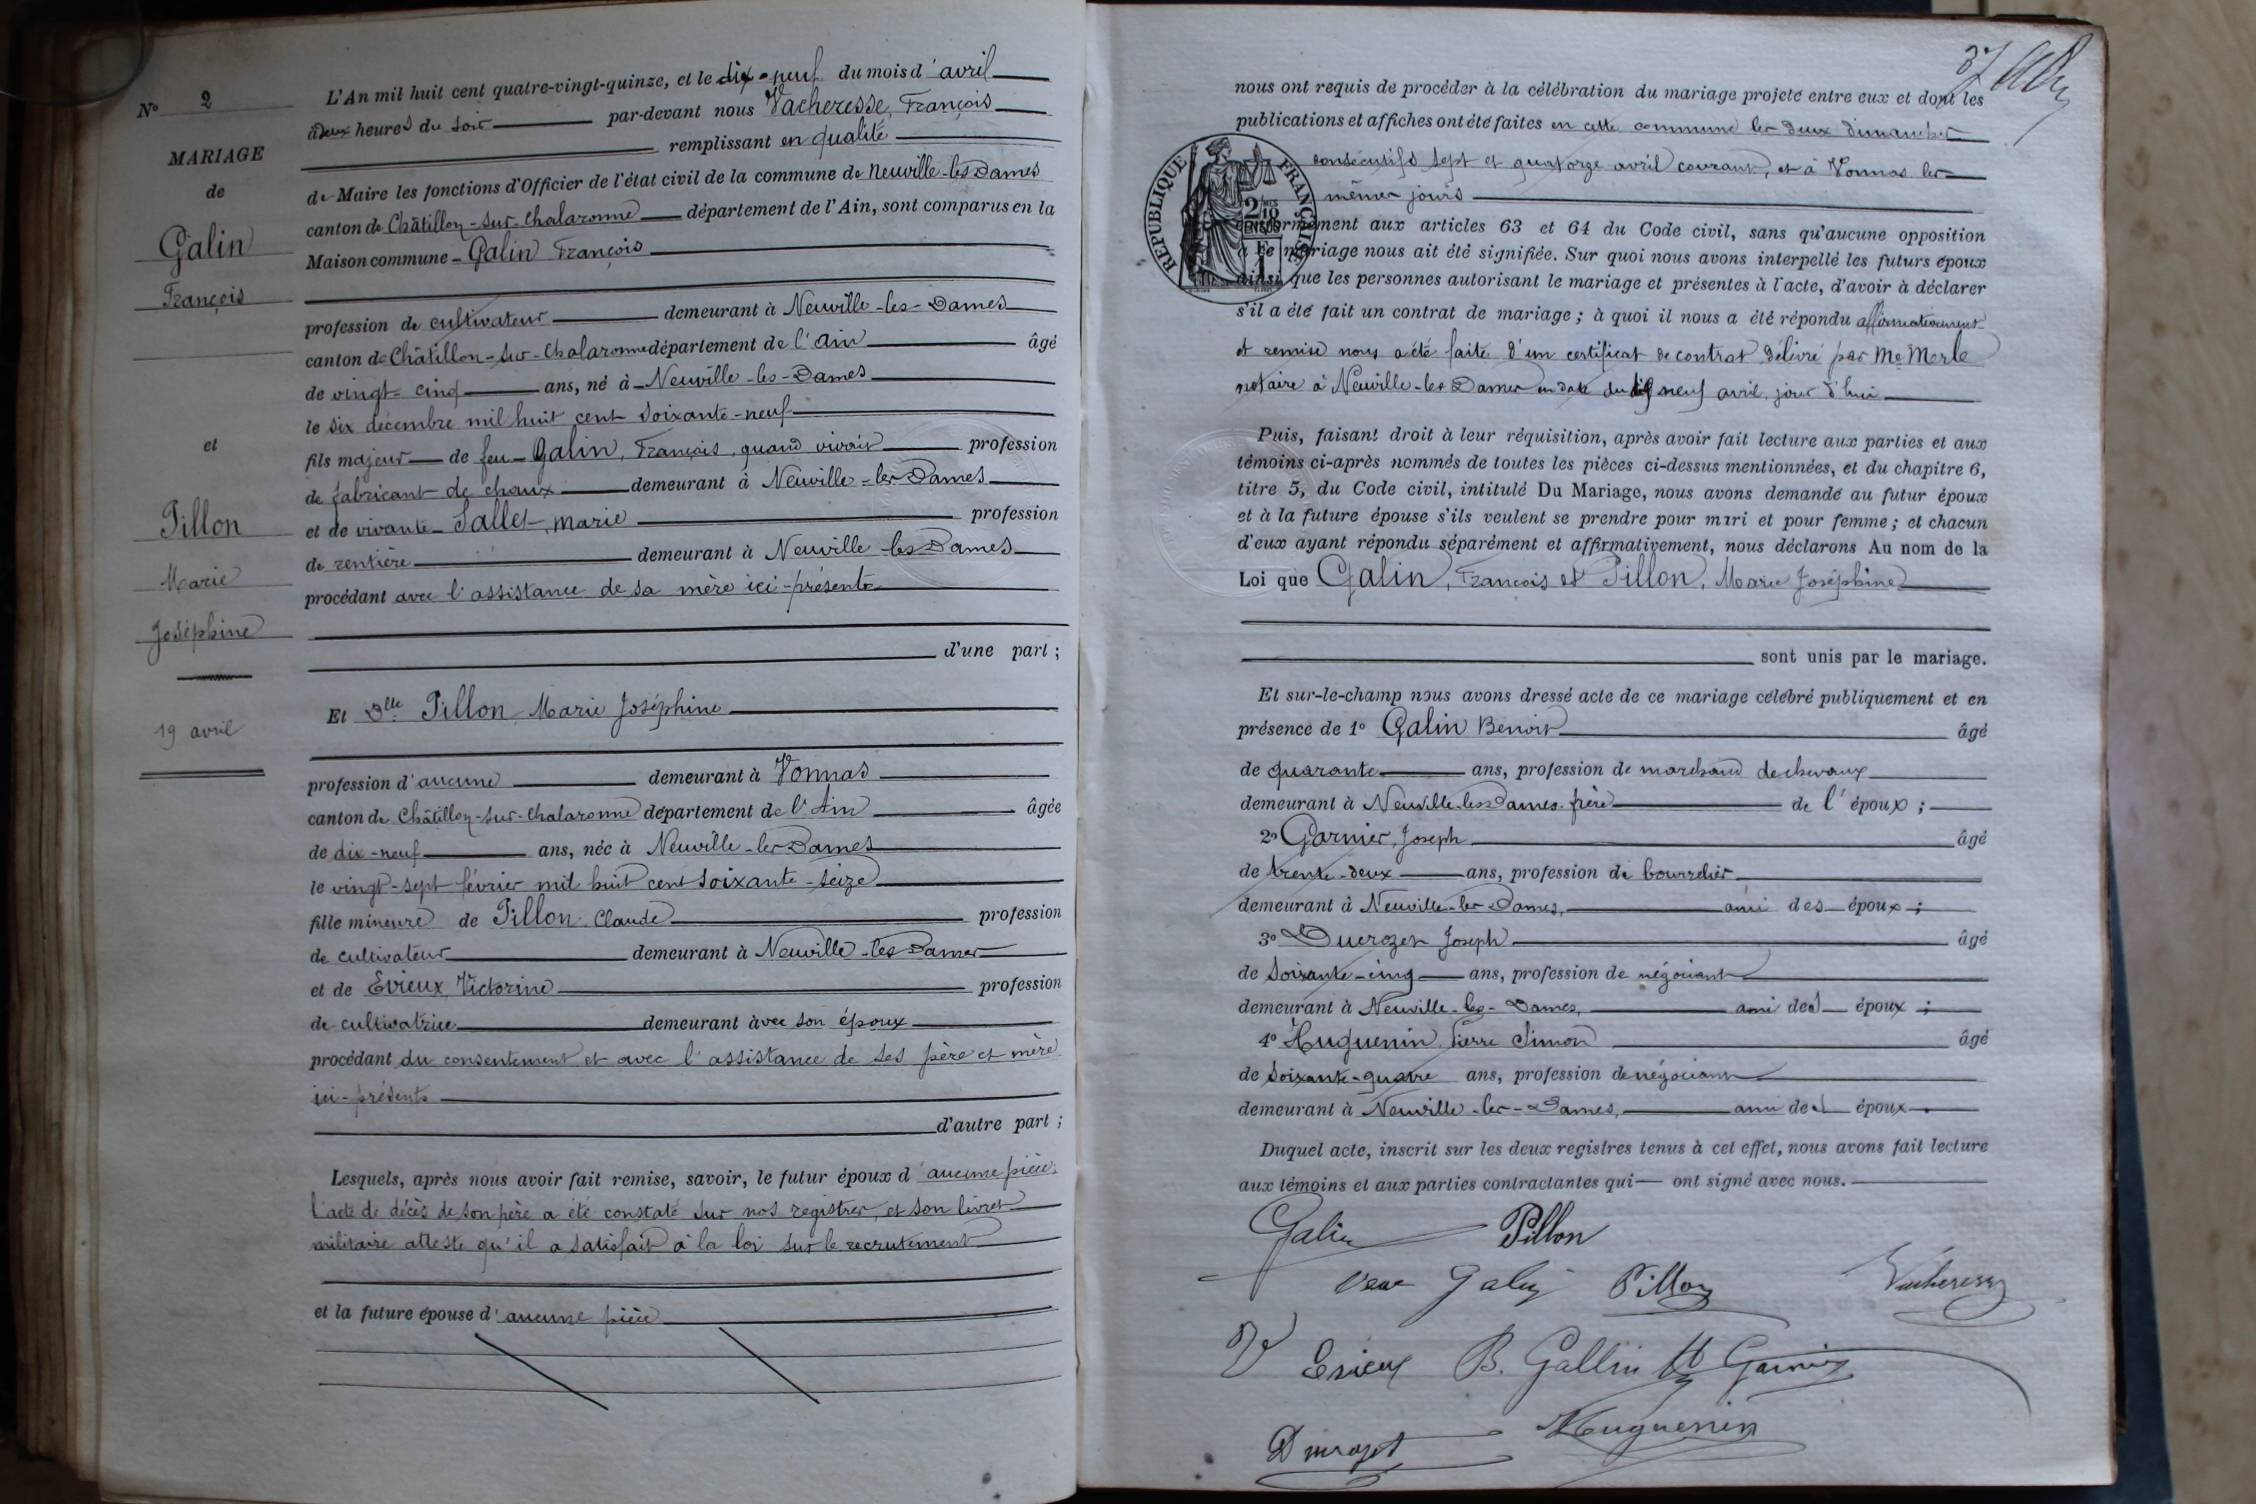 N° 2
MARIAGE
de
Galin
François
et
Pillon
Marie
Joséphine
19 avril
L'An mil huit cent quatre-vingt-quinze, et le dix-neuf du mois d'avril
à deux heures du soir par-devant nous Vacheresse, François
remplissant en qualité
de Maire les fonctions d'Officier de l'état civil de la commune de Neuville-les-Dames
canton de Châtillon-sur-Chalaronne département de l'Ain, sont comparus en la
Maison commune Galin François
profession de cultivateur demeurant à Neuville-les-Dames
canton de Châtillon-sur-Chalaronne département de l'Ain âgé
de vingt-cinq ans, né à Neuville-les-Dames
le six décembre mil huit cent soixante-neuf
fils majeur de feu Galin, François, quand vivait profession
de fabricant de chaux demeurant à Neuville-les-Dames
et de vivante Sallet, Marie profession
de rentière demeurant à Neuville les Dames
procédant avec l'assistance de sa mère ici-présente
d'une part ;
Et Dlle Pillon Marie Joséphine
profession d'aucune demeurant à Vonnas
canton de Châtillon-sur-Chalaronne département de l'Ain âgée
de dix-neuf ans, née à Neuville-les-Dames
le vingt-sept février mil huit cent soixante-seize
fille mineure de Pillon Claude profession
de cultivateur demeurant à Neuville-les-Dames
et de Evieux Victorine profession
de cultivatrice demeurant avec son époux
procédant du consentement et avec l'assistance de ses père et mère
ici-présents
d'autre part ;
Lesquels, après nous avoir fait remise, savoir, le futur époux d'aucune pièce,
l'acte de décès de son père a été constaté sur nos registres, et son livret
militaire atteste qu'il a satisfait à la loi sur le recrutement
et la future épouse d'aucune pièce
nous ont requis de procéder à la célébration du mariage projeté entre eux et dont les
publications et affiches ont été faites en cette commune les deux dimanches
consécutifs sept et quatorze avril courant, et à Vonnas les
mêmes jours
RÉPUBLIQUE FRANÇAISE
conformément aux articles 63 et 64 du Code civil, sans qu'aucune opposition
à ce mariage nous ait été signifiée. Sur quoi nous avons interpellé les futurs époux
ainsi que les personnes autorisant le mariage et présentes à l'acte, d'avoir à déclarer
s'il a été fait un contrat de mariage ; à quoi il nous a été répondu affirmativement
et remise nous a été faite d'un certificat de contrat délivré par Me Merle
notaire à Neuville-les-Dames en date du dix neuf avril, jour d'hui
Puis, faisant droit à leur réquisition, après avoir fait lecture aux parties et aux
témoins ci-après nommés de toutes les pièces ci-dessus mentionnées, et du chapitre 6,
titre 5, du Code civil, intitulé Du Mariage, nous avons demandé au futur époux
et à la future épouse s'ils veulent se prendre pour mari et pour femme ; et chacun
d'eux ayant répondu séparément et affirmativement, nous déclarons Au nom de la
Loi que Galin, François et Pillon, Marie Joséphine
sont unis par le mariage.
Et sur-le-champ nous avons dressé acte de ce mariage célébré publiquement et en
présence de 1° Galin Benoit âgé
de quarante ans, profession de marchand de chevaux
demeurant à Neuville-les-Dames frère de l'époux ;
2° Garnier, Joseph âgé
de trente-deux ans, profession de bourrelier
demeurant à Neuville-les-Dames, ami des époux ;
3° Ducrozet Joseph âgé
de soixante-cinq ans, profession de négociant
demeurant à Neuville-les-Dames, ami des époux ;
4° Huguenin Pierre Simon âgé
de soixante-quatre ans, profession de négociant
demeurant à Neuville-les-Dames, ami des époux.
Duquel acte, inscrit sur les deux registres tenus à cet effet, nous avons fait lecture
aux témoins et aux parties contractantes qui ont signé avec nous.
Galin Pillon
Galin Pillon Vacheresse
Evieux B. Gallin Garnier
Ducrozet Huguenin